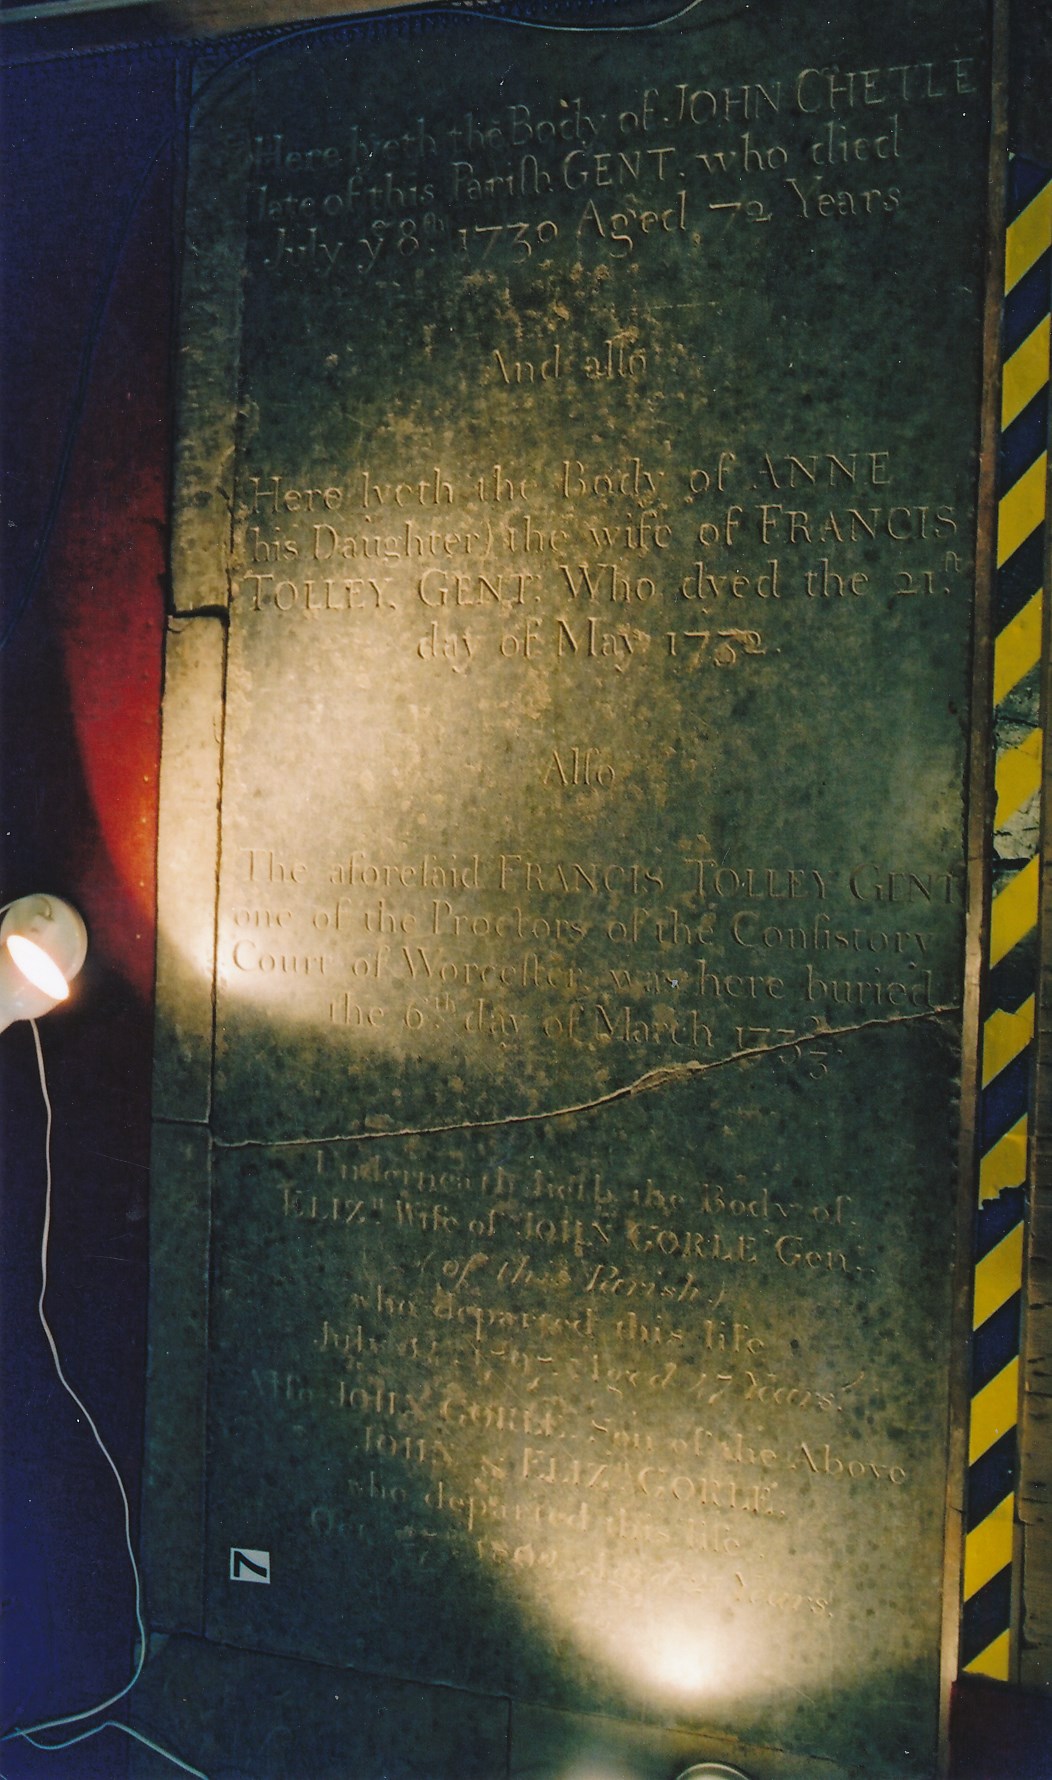 Here lyeth the Body of JOHN CHETLE
late of this Pariſh GENT. who died
July yᵉ 8th 1730 Aged 72 Years
And alſo
Here lyeth the Body of ANNE
his Daughter) the wife of FRANCIS
TOLLEY, GENT. Who dyed the 21.ſt
day of May 1732.
Alſo
The aforeſaid FRANCIS TOLLEY GENT
one of the Proctors of the Conſistory
Court of Worceſter, was here buried
the 6th day of March
Underneath lieth the Body of
ELIZ.th Wife of JOHN GORLE Gen.
(of this Parish)
who departed this life
July Aged Years.
Alſo JOHN GORLE, Son of the Above
JOHN & ELIZ.th GORLE,
who departed this life
Oct. Years.
7